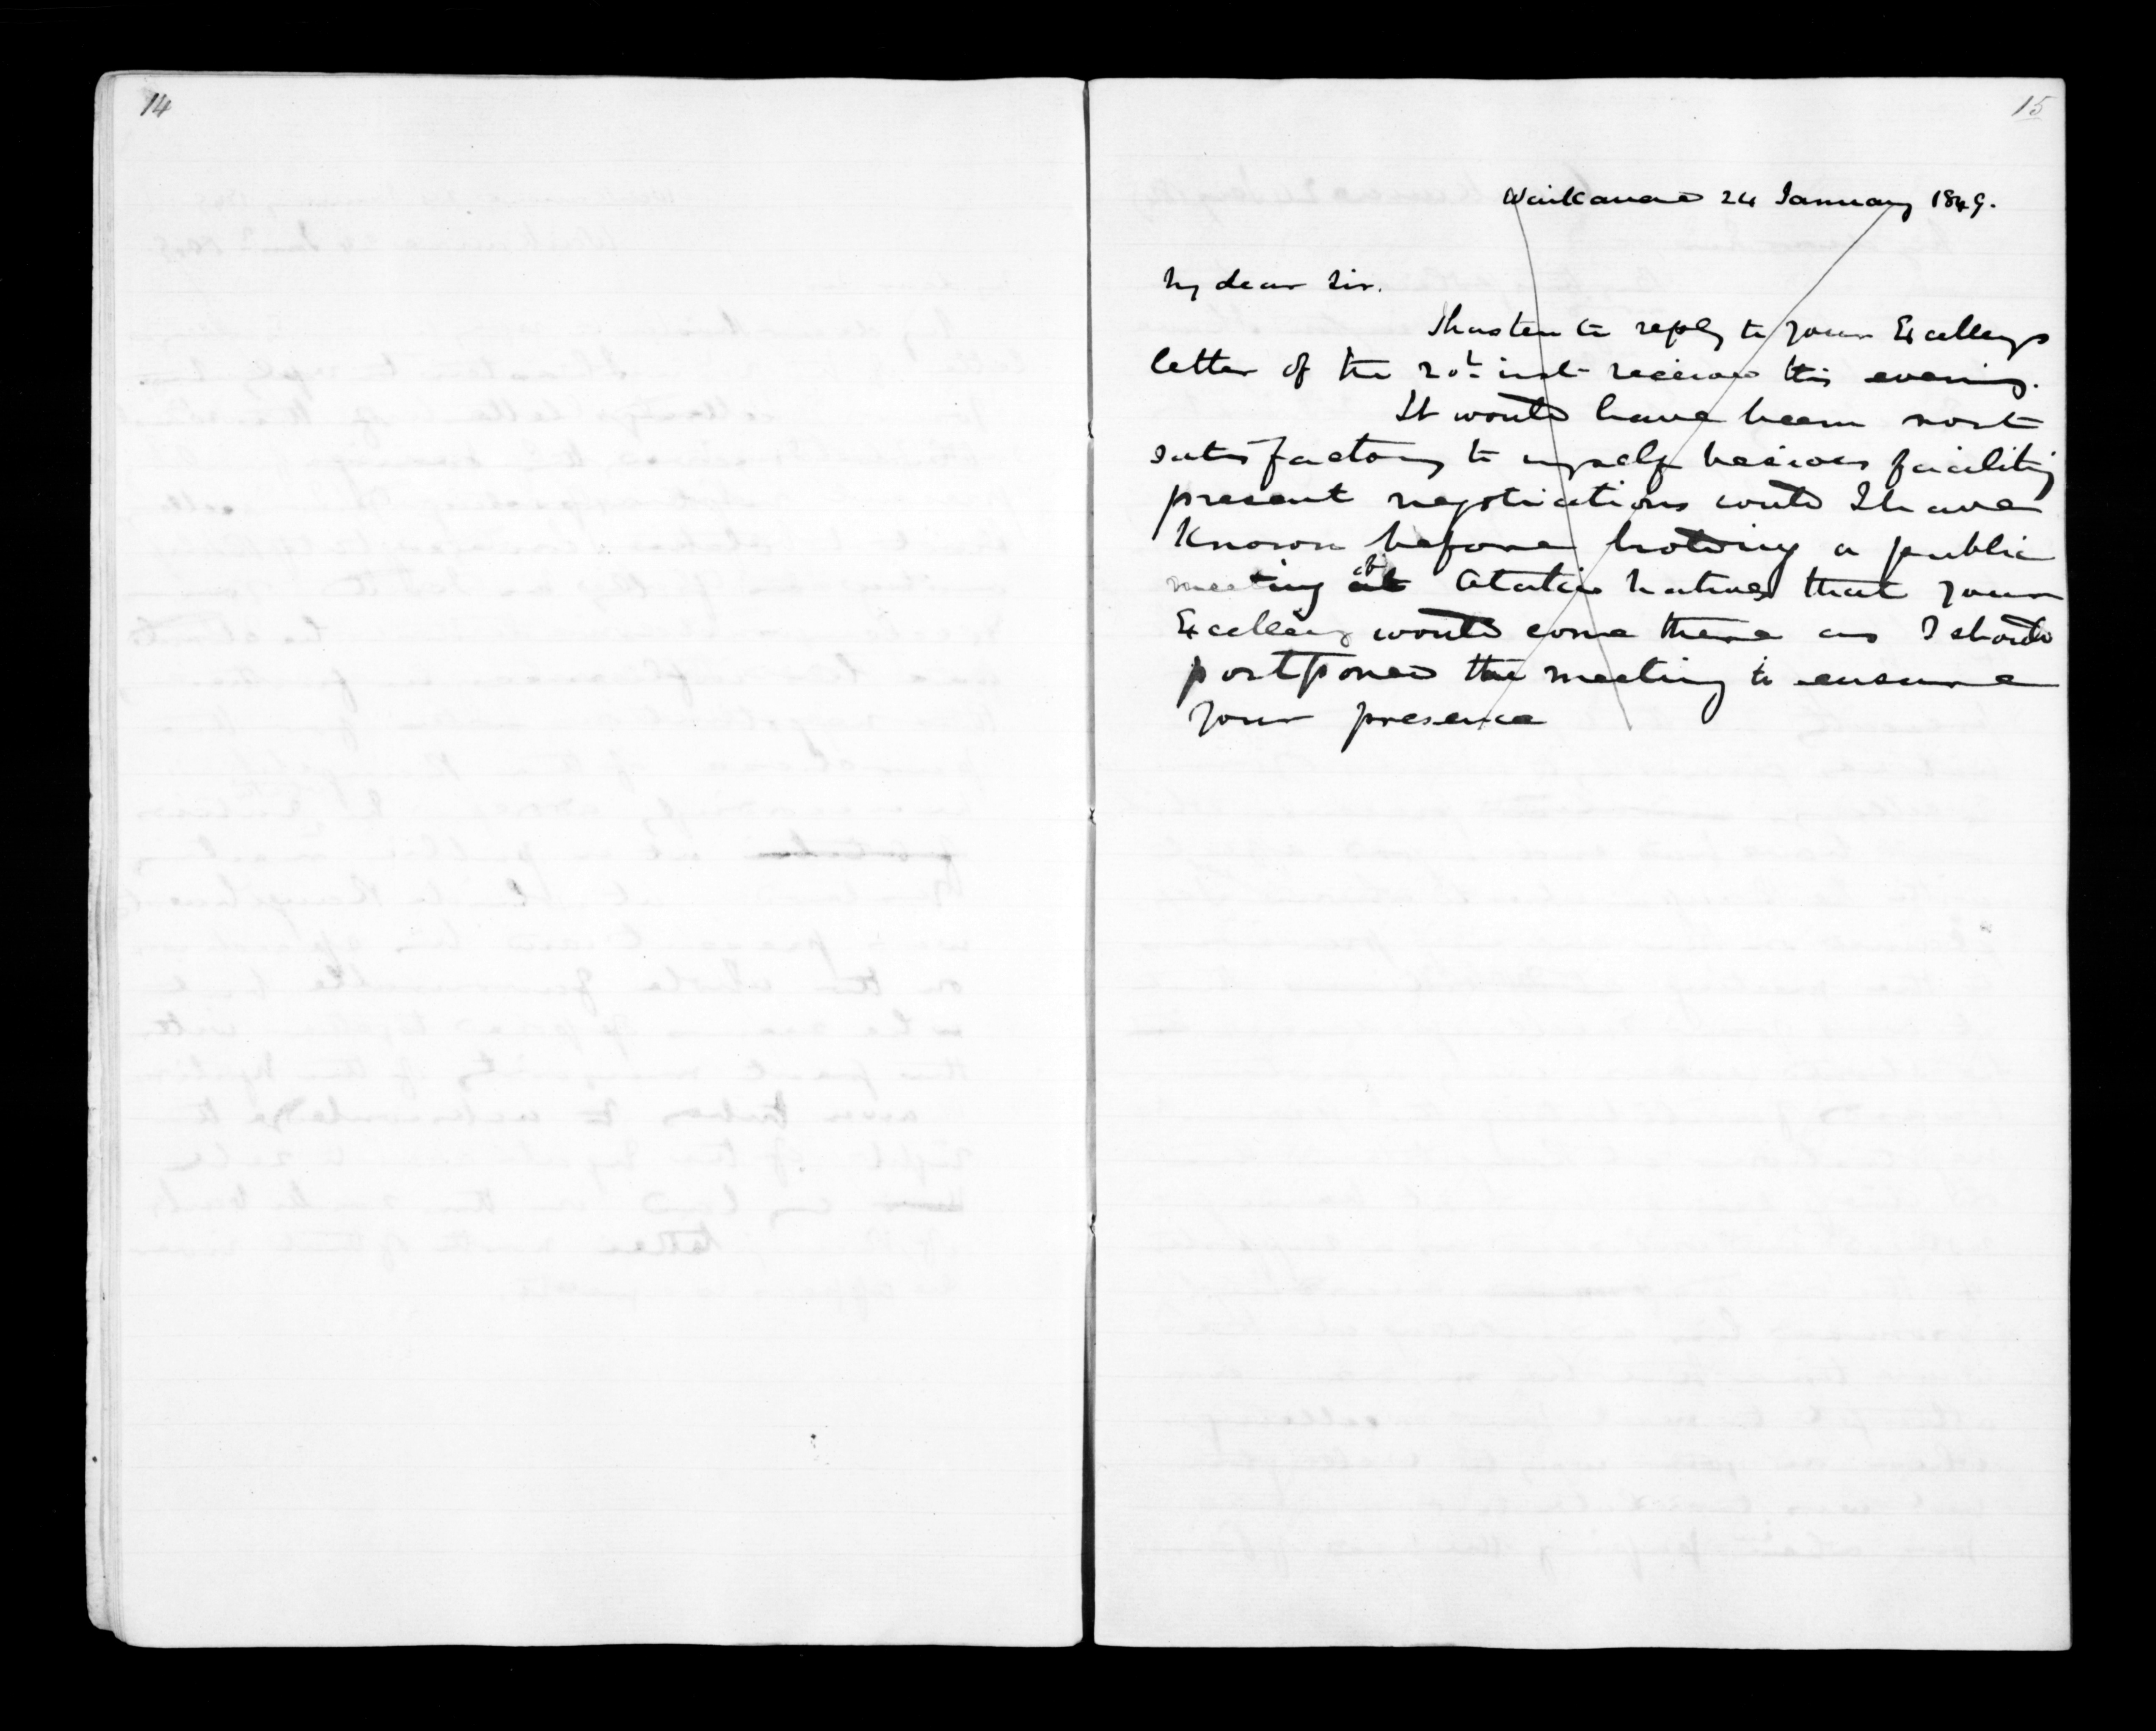 14
15
Waikanae 24 January 1849.
My dear Sir.
I hasten to reply to your Excellency's
letter of the 20th inst received this evening.
It would have been most
satisfactory to myself besides facilitig
present negotiations could I have
known before holding a public
meeting at Otaki that your
Excellency would come there as I should
postponed the meeting to ensure
your presence